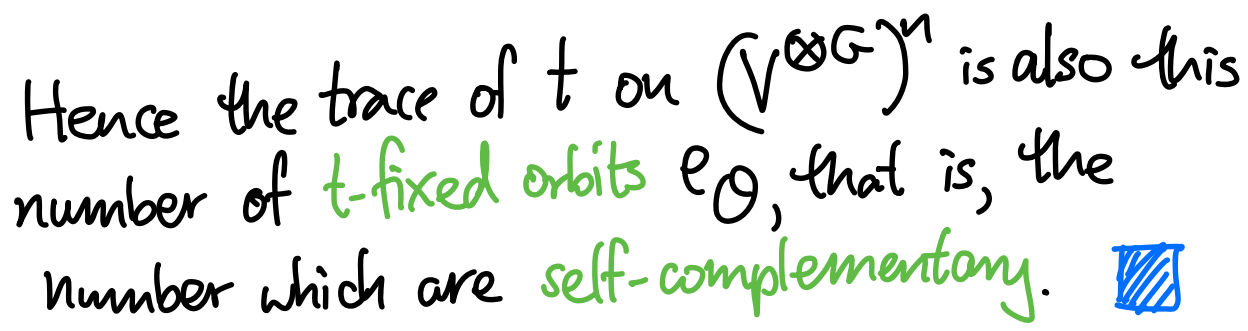 Hence the trace of t on (V^{⊗G})^n is also this
number of t-fixed orbits e_O, that is, the
number which are self-complementary.